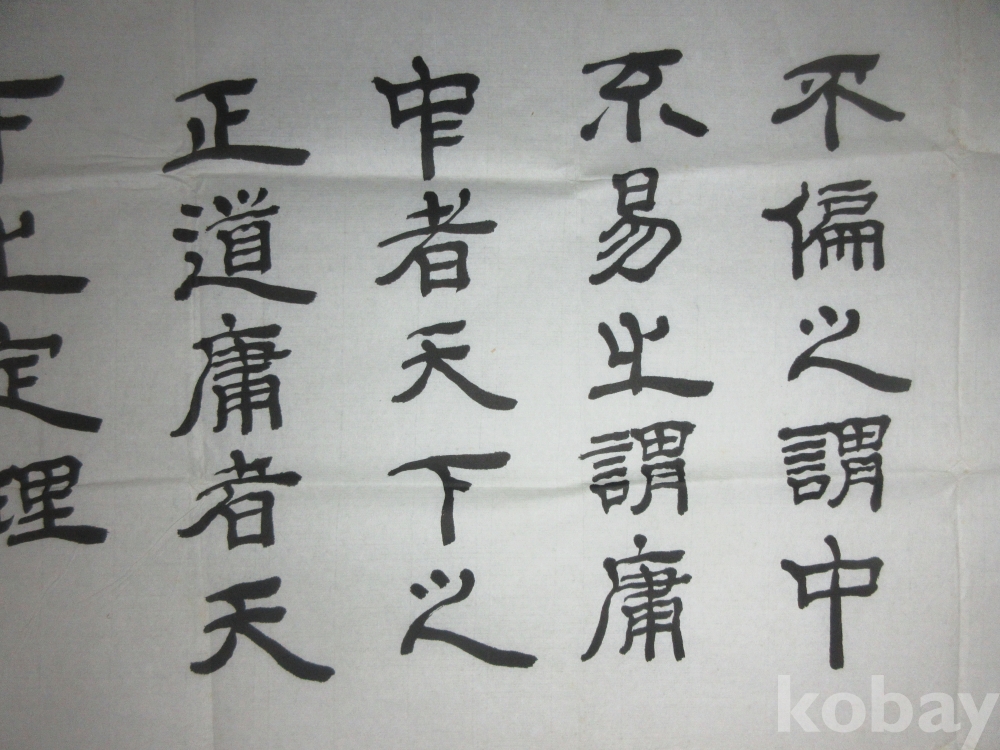 不偏之謂中
不易之謂庸
中者天下之
正道庸者天
下之定理
kobay